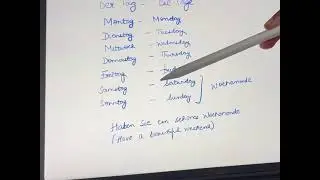 Der Tag - Die Tage
Montag - Monday
Dienstag - Tuesday
Mittwoch - Wednesday
Donnerstag - Thursday
Freitag -
Samstag - Saturday
Sonntag - Sunday
Wochenende
Haben Sie ein schönes Wochenende
(Have a beautiful weekend)